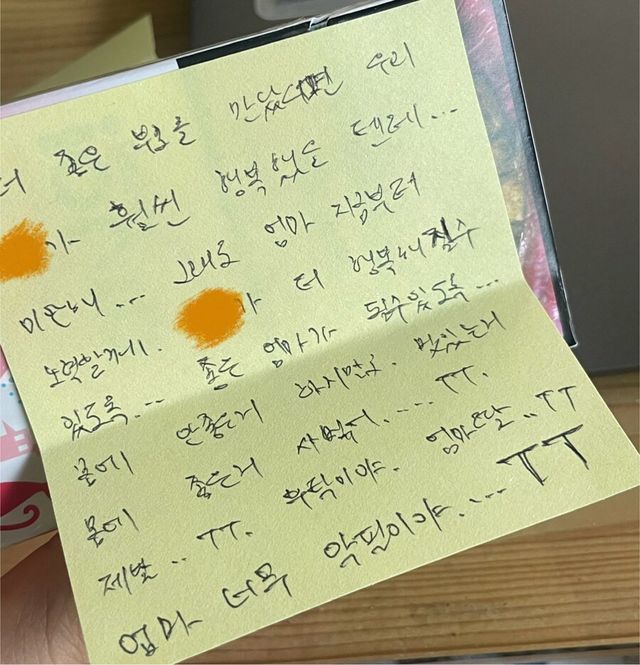 더 좋은 부모를 만났더면 우리
가 훨씬 행복했을 텐데...
미안해... 그래도 엄마 지금부터
노력할게. 아 더 행복해질수
있도록... 좋은 엄마가 될수있도록...
몸에 안좋은거 하지말고. 맛있는거
몸에 좋은거 사먹어.... TT.
제발.. TT. 부탁이야. 엄마딸..TT
엄마 너무 악필이야.... TT